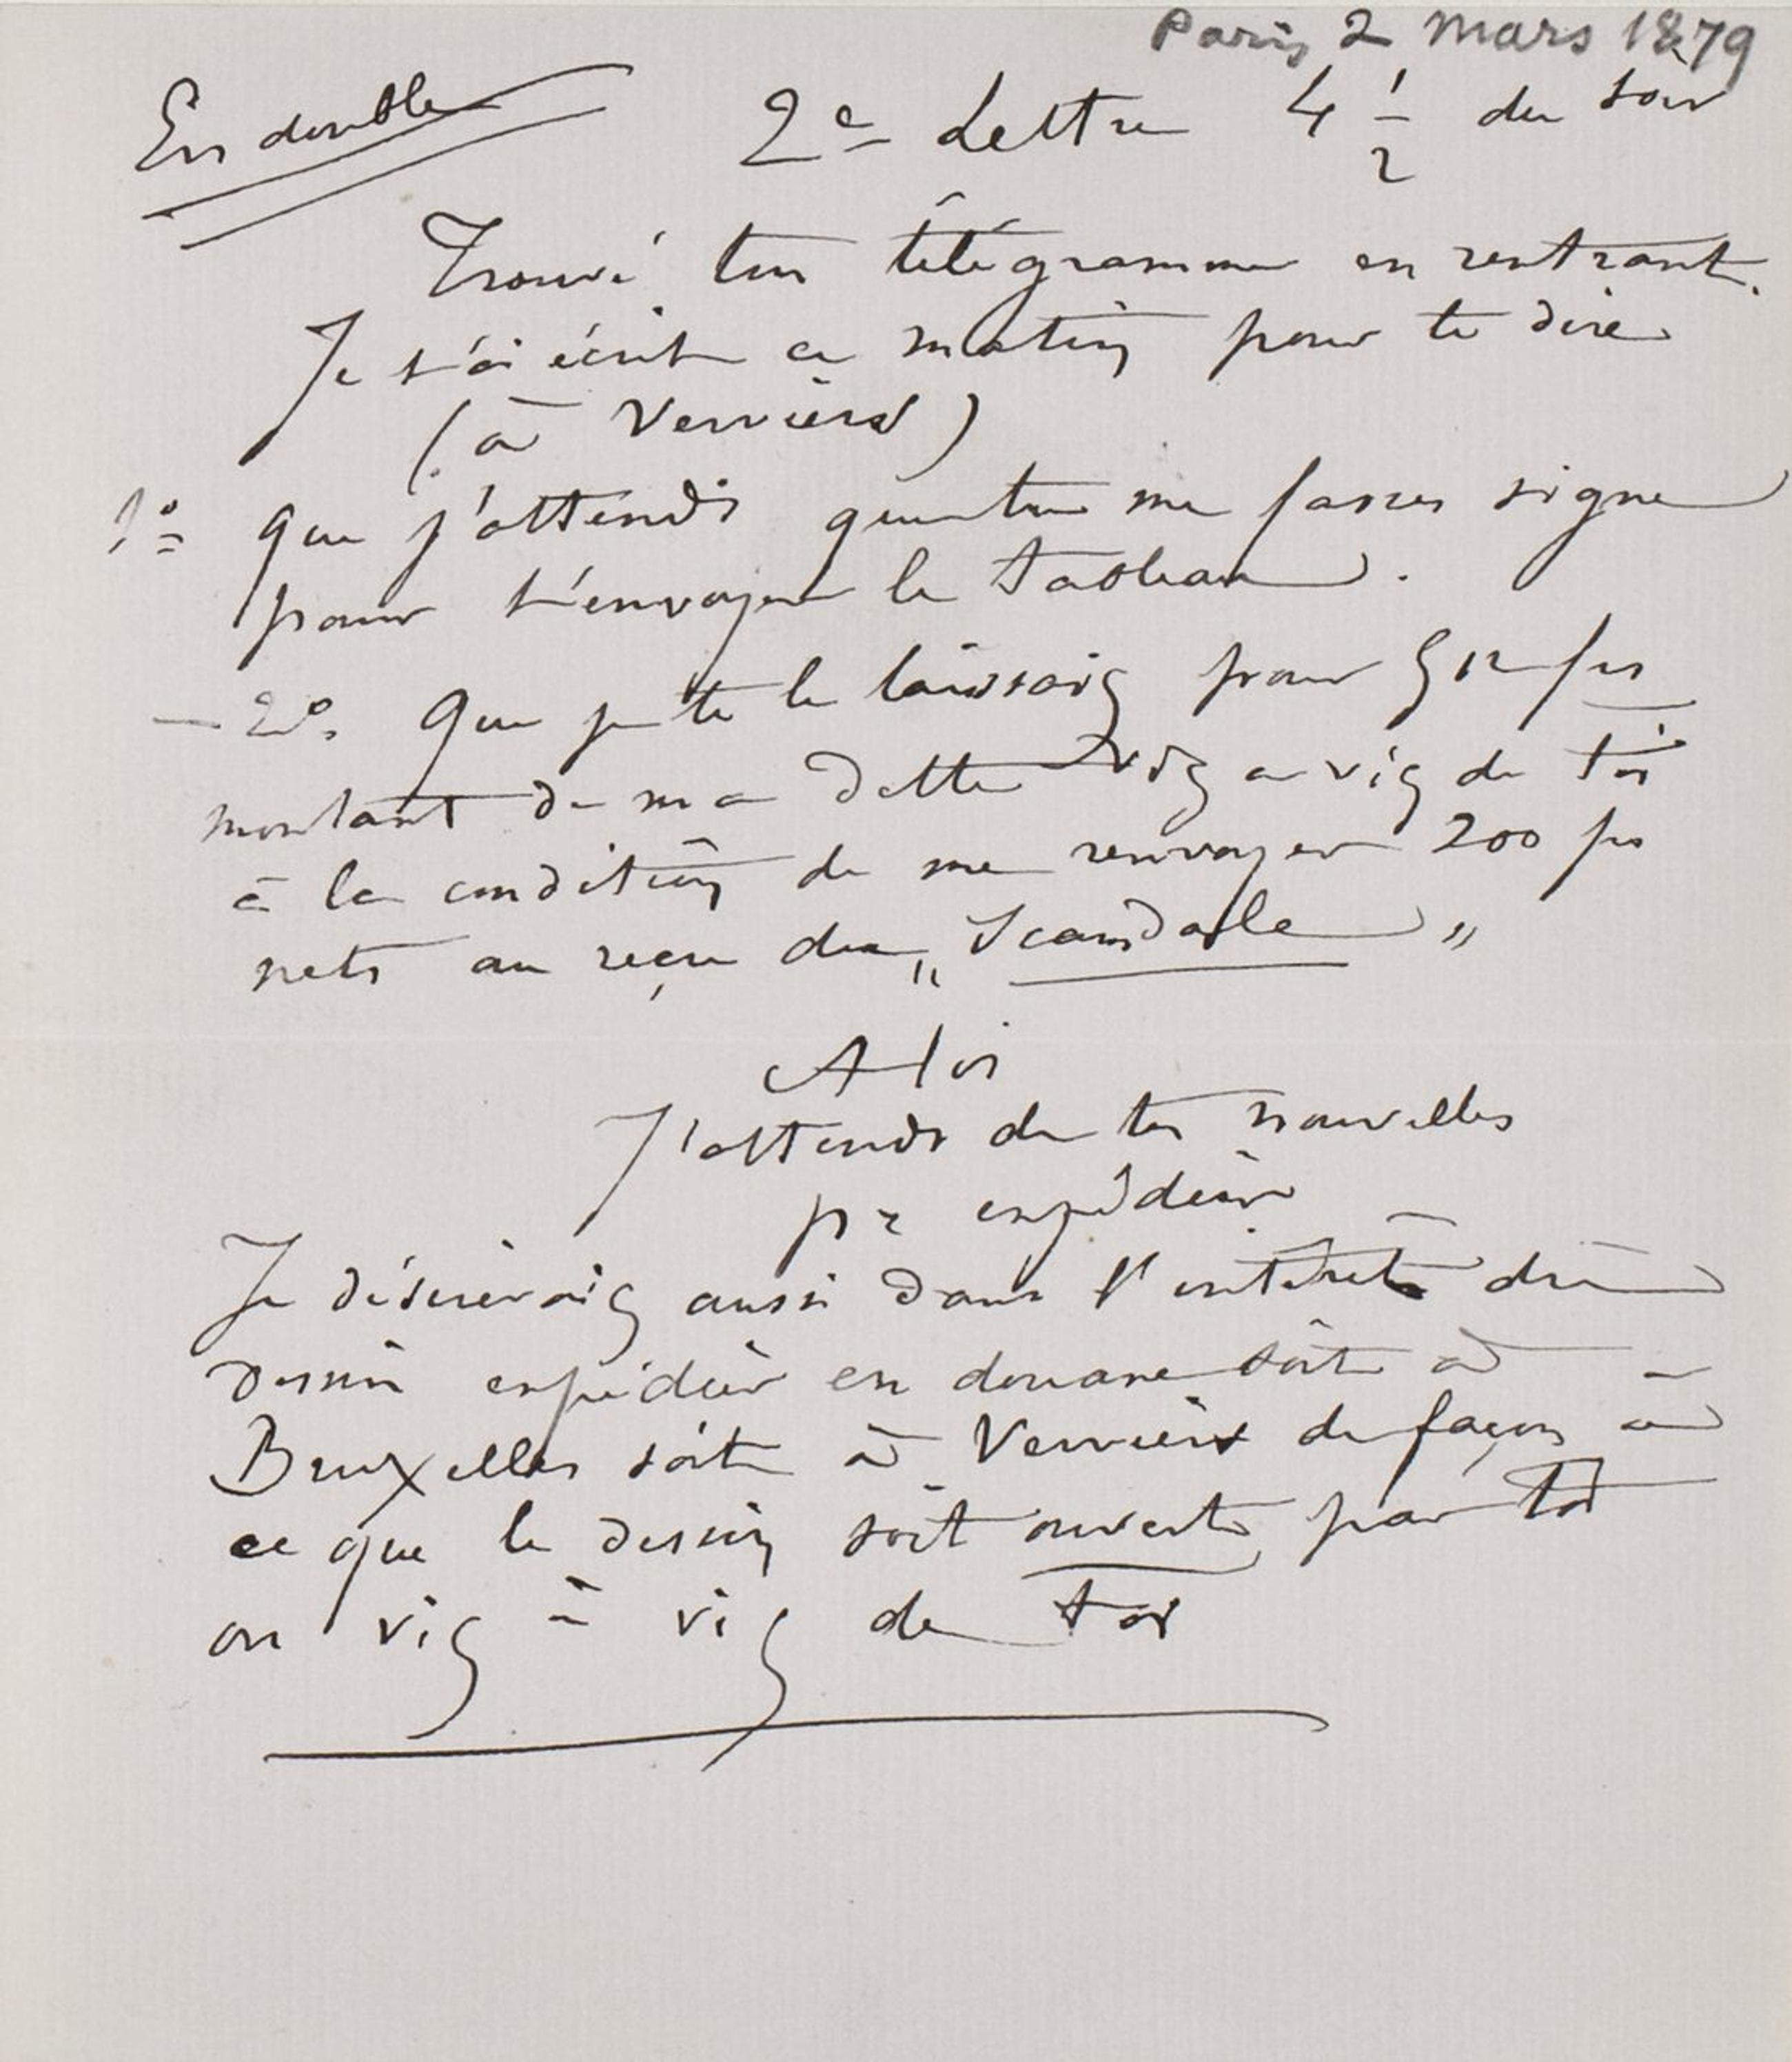 Paris 2 Mars 1879
En double 2e Lettre 4 1/2 du soir
Trouvé ton télégramme en rentrant.
Je t'ai écrit ce matin pour te dire
(à Verviers)
1o que j'attends que tu me fasses signe
pour t'envoyer le tableau.
— 2o. Que je te le laissais pour 512 frs
montant de ma dette vis a vis de toi
à la condition de me renvoyer 200 frs
nets au reçu du „Scandale"
A toi
J'attends de tes nouvelles
pr expédier
Je désirerais aussi dans l'intérêt du
dessin expédier en douane soit à
Bruxelles soit à Verviers de façon à
ce que le dessin soit ouvert par toi
ou vis à vis de toi